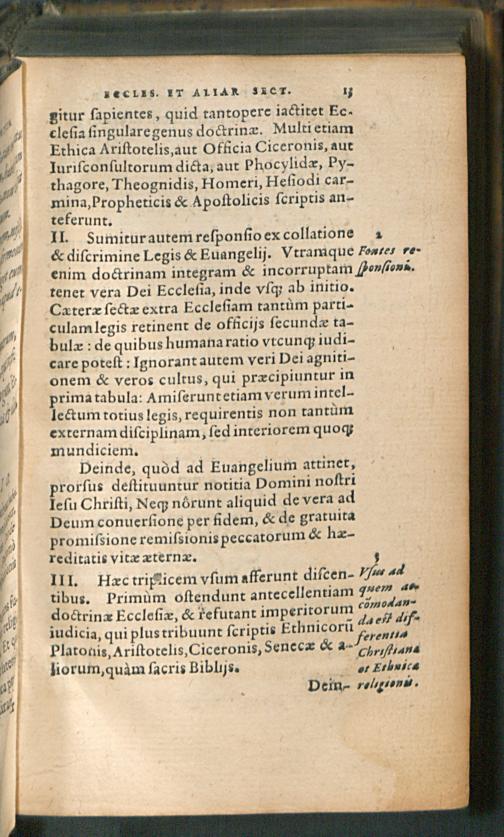 ECCLES. ET ALIAR SECT. 13
gitur ſapientes, quid tantopere iactitet Ec-
cleſia ſingulare genus doctrinæ. Multi etiam
Ethica Ariſtotelis, aut Officia Ciceronis, aut
Iuriſconſultorum dicta, aut Phocylidæ, Py-
thagoræ, Theognidis, Homeri, Heſiodi car-
mina, Propheticis & Apoſtolicis ſcriptis an-
teferunt.
II. Sumitur autem reſponſio ex collatione
& diſcrimine Legis & Euangelij. Vtramque
enim doctrinam integram & incorruptam
tenet vera Dei Eccleſia, inde vſq; ab initio.
Cæteræ ſectæ extra Eccleſiam tantùm parti-
culam legis retinent de officijs ſecundæ ta-
bulæ : de quibus humana ratio vtcunq; iudi-
care poteſt : Ignorant autem veri Dei agniti-
onem & veros cultus, qui præcipiuntur in
prima tabula: Amiſerunt etiam verum intel-
lectum totius legis, requirentis non tantùm
externam diſciplinam, ſed interiorem quoq;
mundiciem.
Deinde, quòd ad Euangelium attinet,
prorſus deſtituuntur notitia Domini noſtri
Ieſu Chriſti, Neq; nôrunt aliquid de vera ad
Deum conuerſione per fidem, & de gratuita
promiſſione remiſſionis peccatorum & hæ-
reditatis vitæ æternæ.
III. Hæc triplicem vſum afferunt diſcen-
tibus. Primùm oſtendunt antecellentiam
doctrinæ Eccleſiæ, & refutant imperitorum
iudicia, qui plus tribuunt ſcriptis Ethnicorũ
Platonis, Ariſtotelis, Ciceronis, Senecæ & a-
liorum, quàm ſacris Biblijs.
Dein-
2
Fontes re-
ſponſionis.
3
Vſus ad
quem ac-
cõmodan-
da eſt dif-
ferentia
Chriſtianæ
et Ethnicæ
religionis.